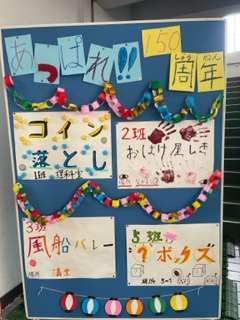 あっぱれ!! 150
周年
しゅう ねん
コイン
落とし
1班 理科室
2班
おばけ屋しき
3班
風船バレー
場所
5班
?ボックス
場所 5-1